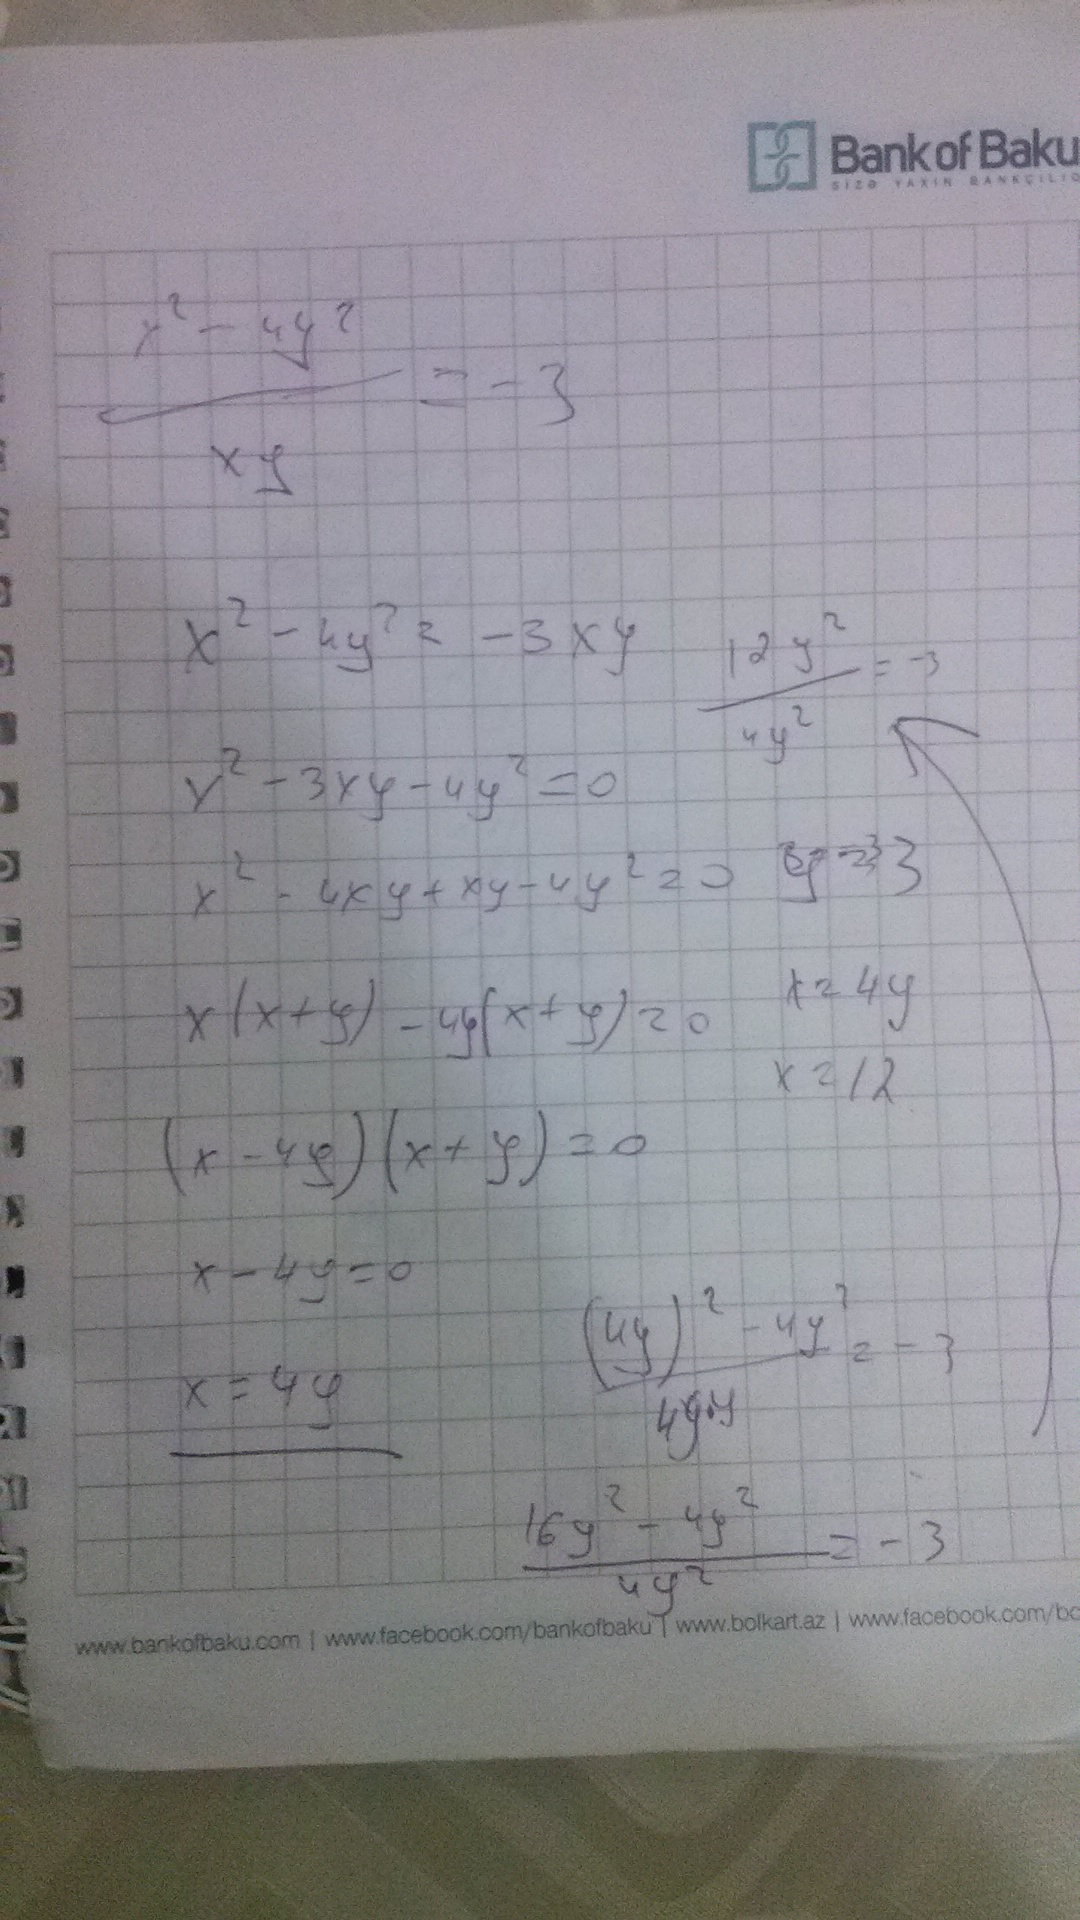 Bank of Baku
SİZƏ YAXIN BANKÇILIQ
x² - 4y² / xy = -3
x² - 4y² = -3xy
x² - 3xy - 4y² = 0
x² - 4xy + xy - 4y² = 0
x(x+y) - 4y(x+y) = 0
(x - 4y)(x + y) = 0
x - 4y = 0
x = 4y
12y² / 4y² = -3
x = 4y
x = 12
(4y)² - 4y² / 4y·y = -3
16y² - 4y² / 4y² = -3
www.bankofbaku.com | www.facebook.com/bankofbaku | www.bolkart.az | www.facebook.com/bo